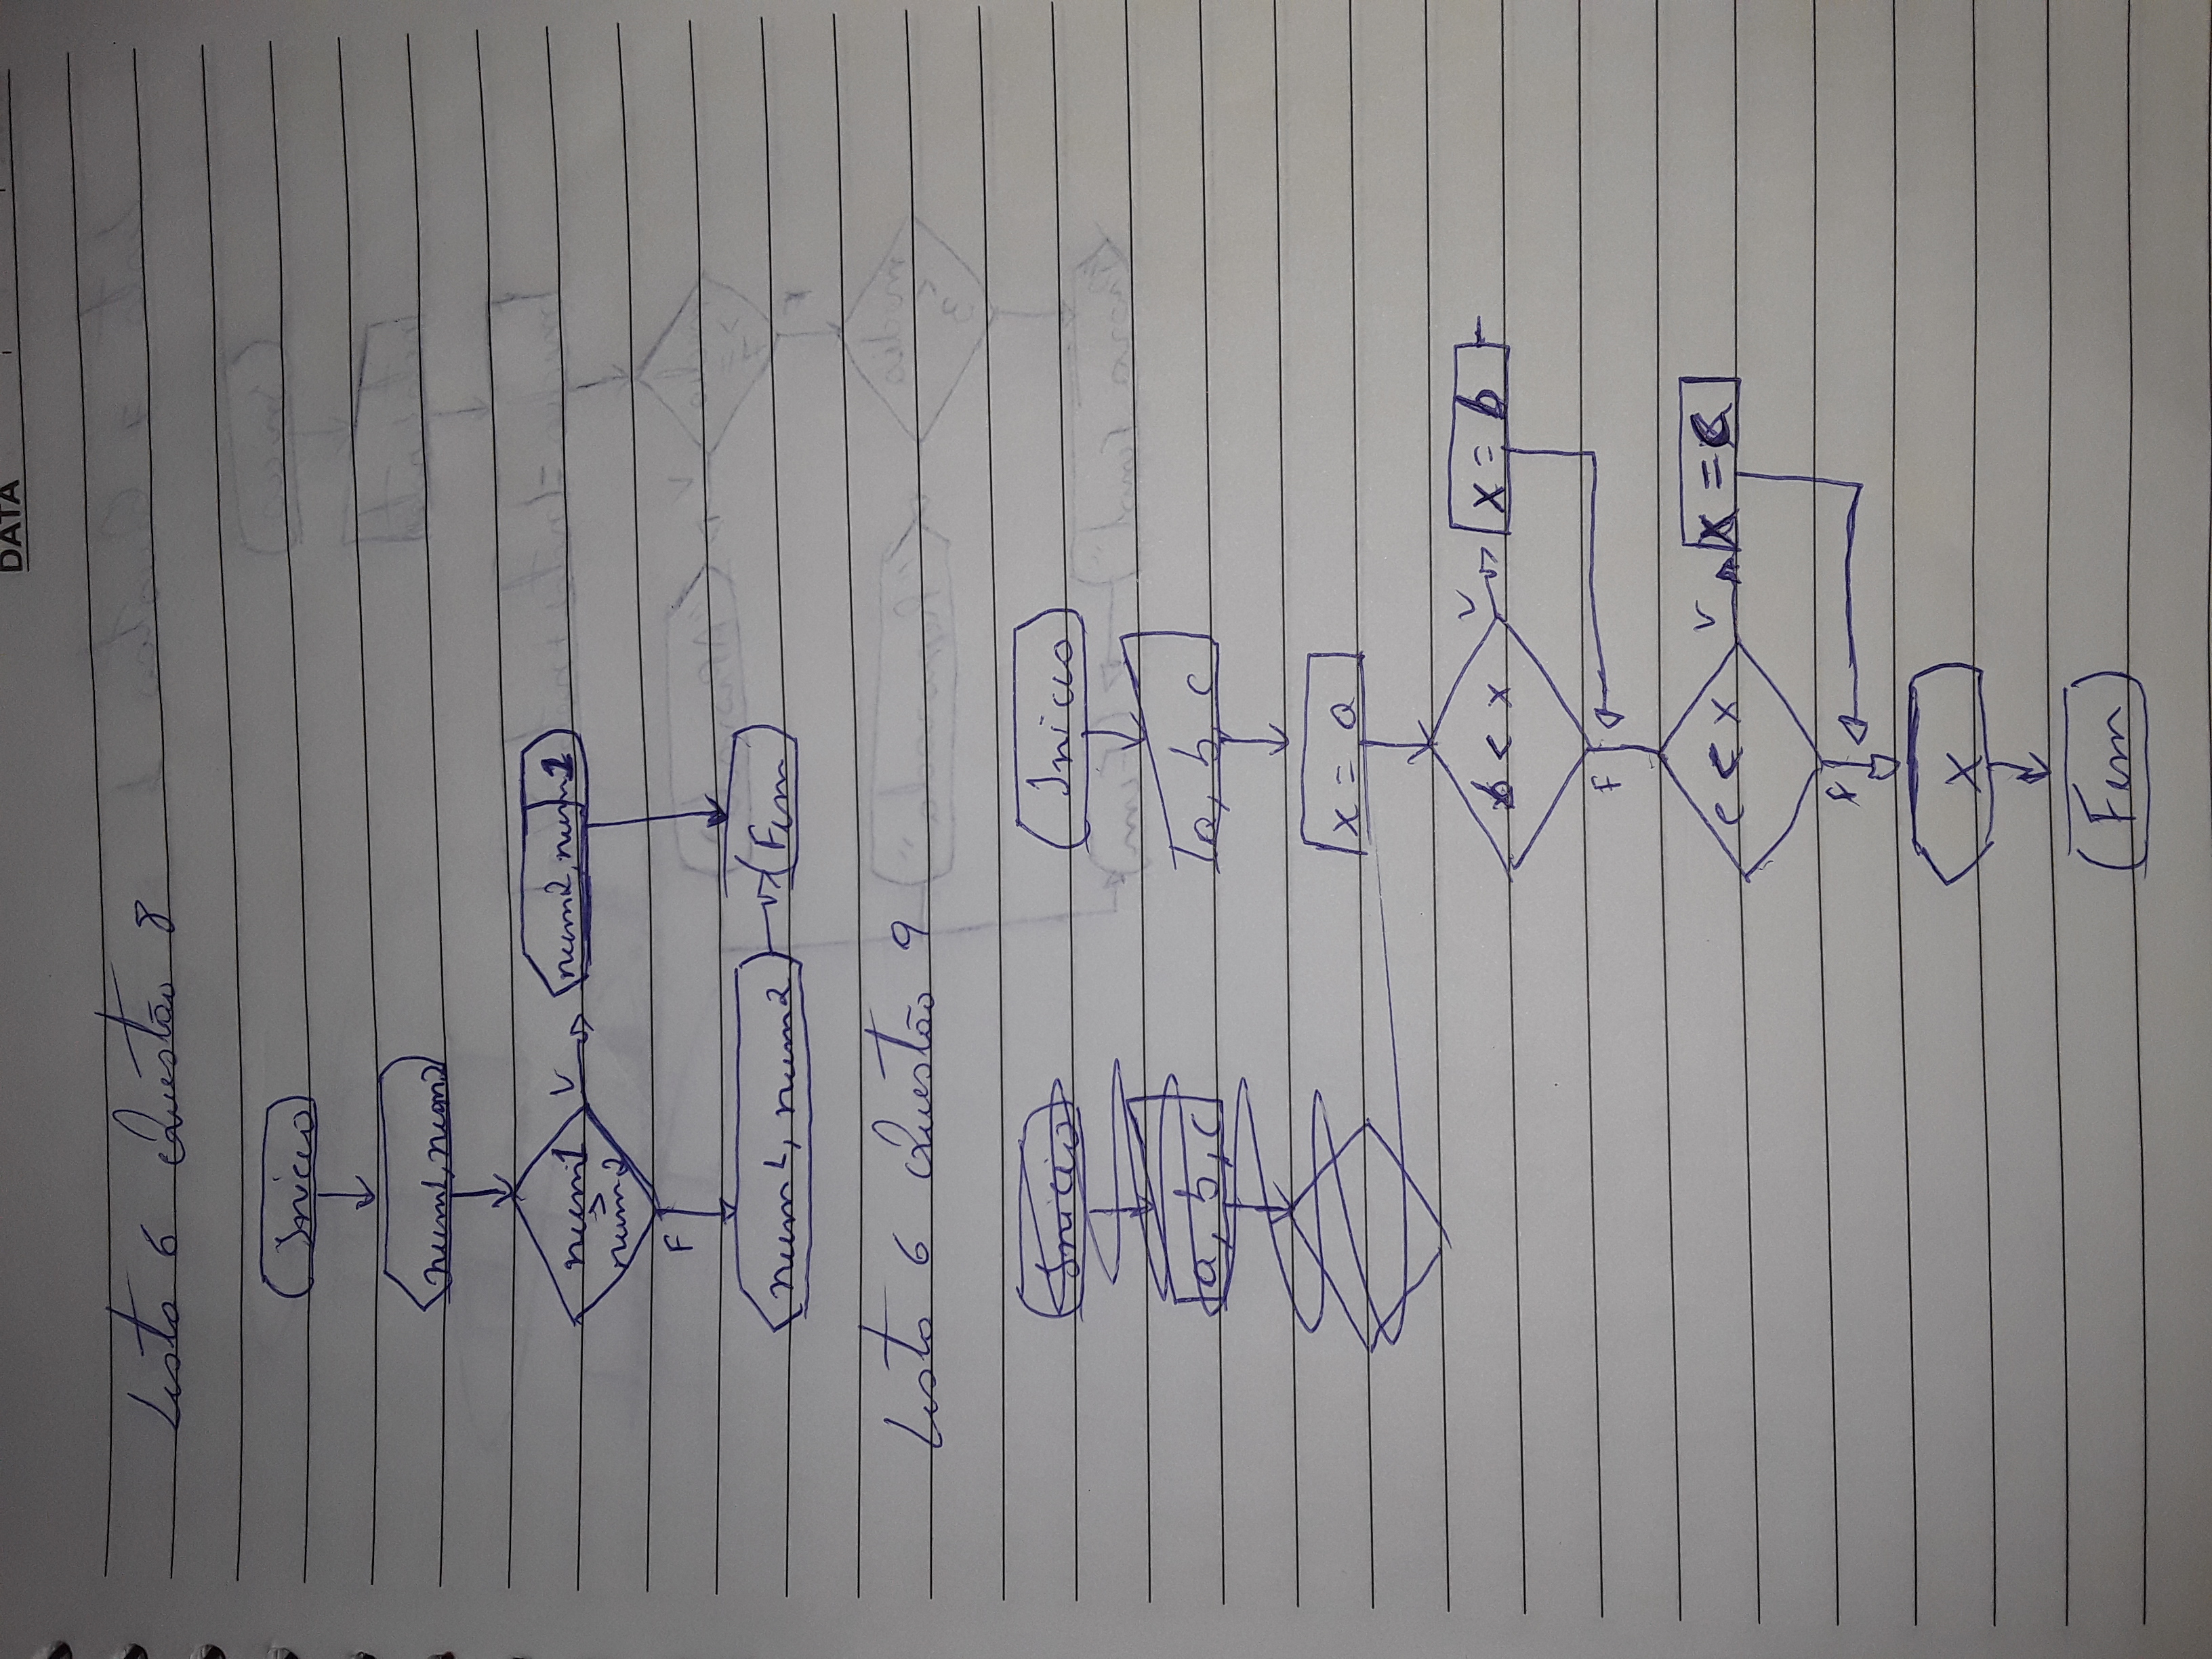 DATA
Lista 6 Questão 8
Inicio
num1, num2
num1
>
num2
V
num2, num1
F
num1, num2
Fim
Lista 6 Questão 9
Inicio
a, b, c
Inicio
a, b, c
x = a
b < x
V
x = b
F
c < x
V
x = c
F
x
Fim